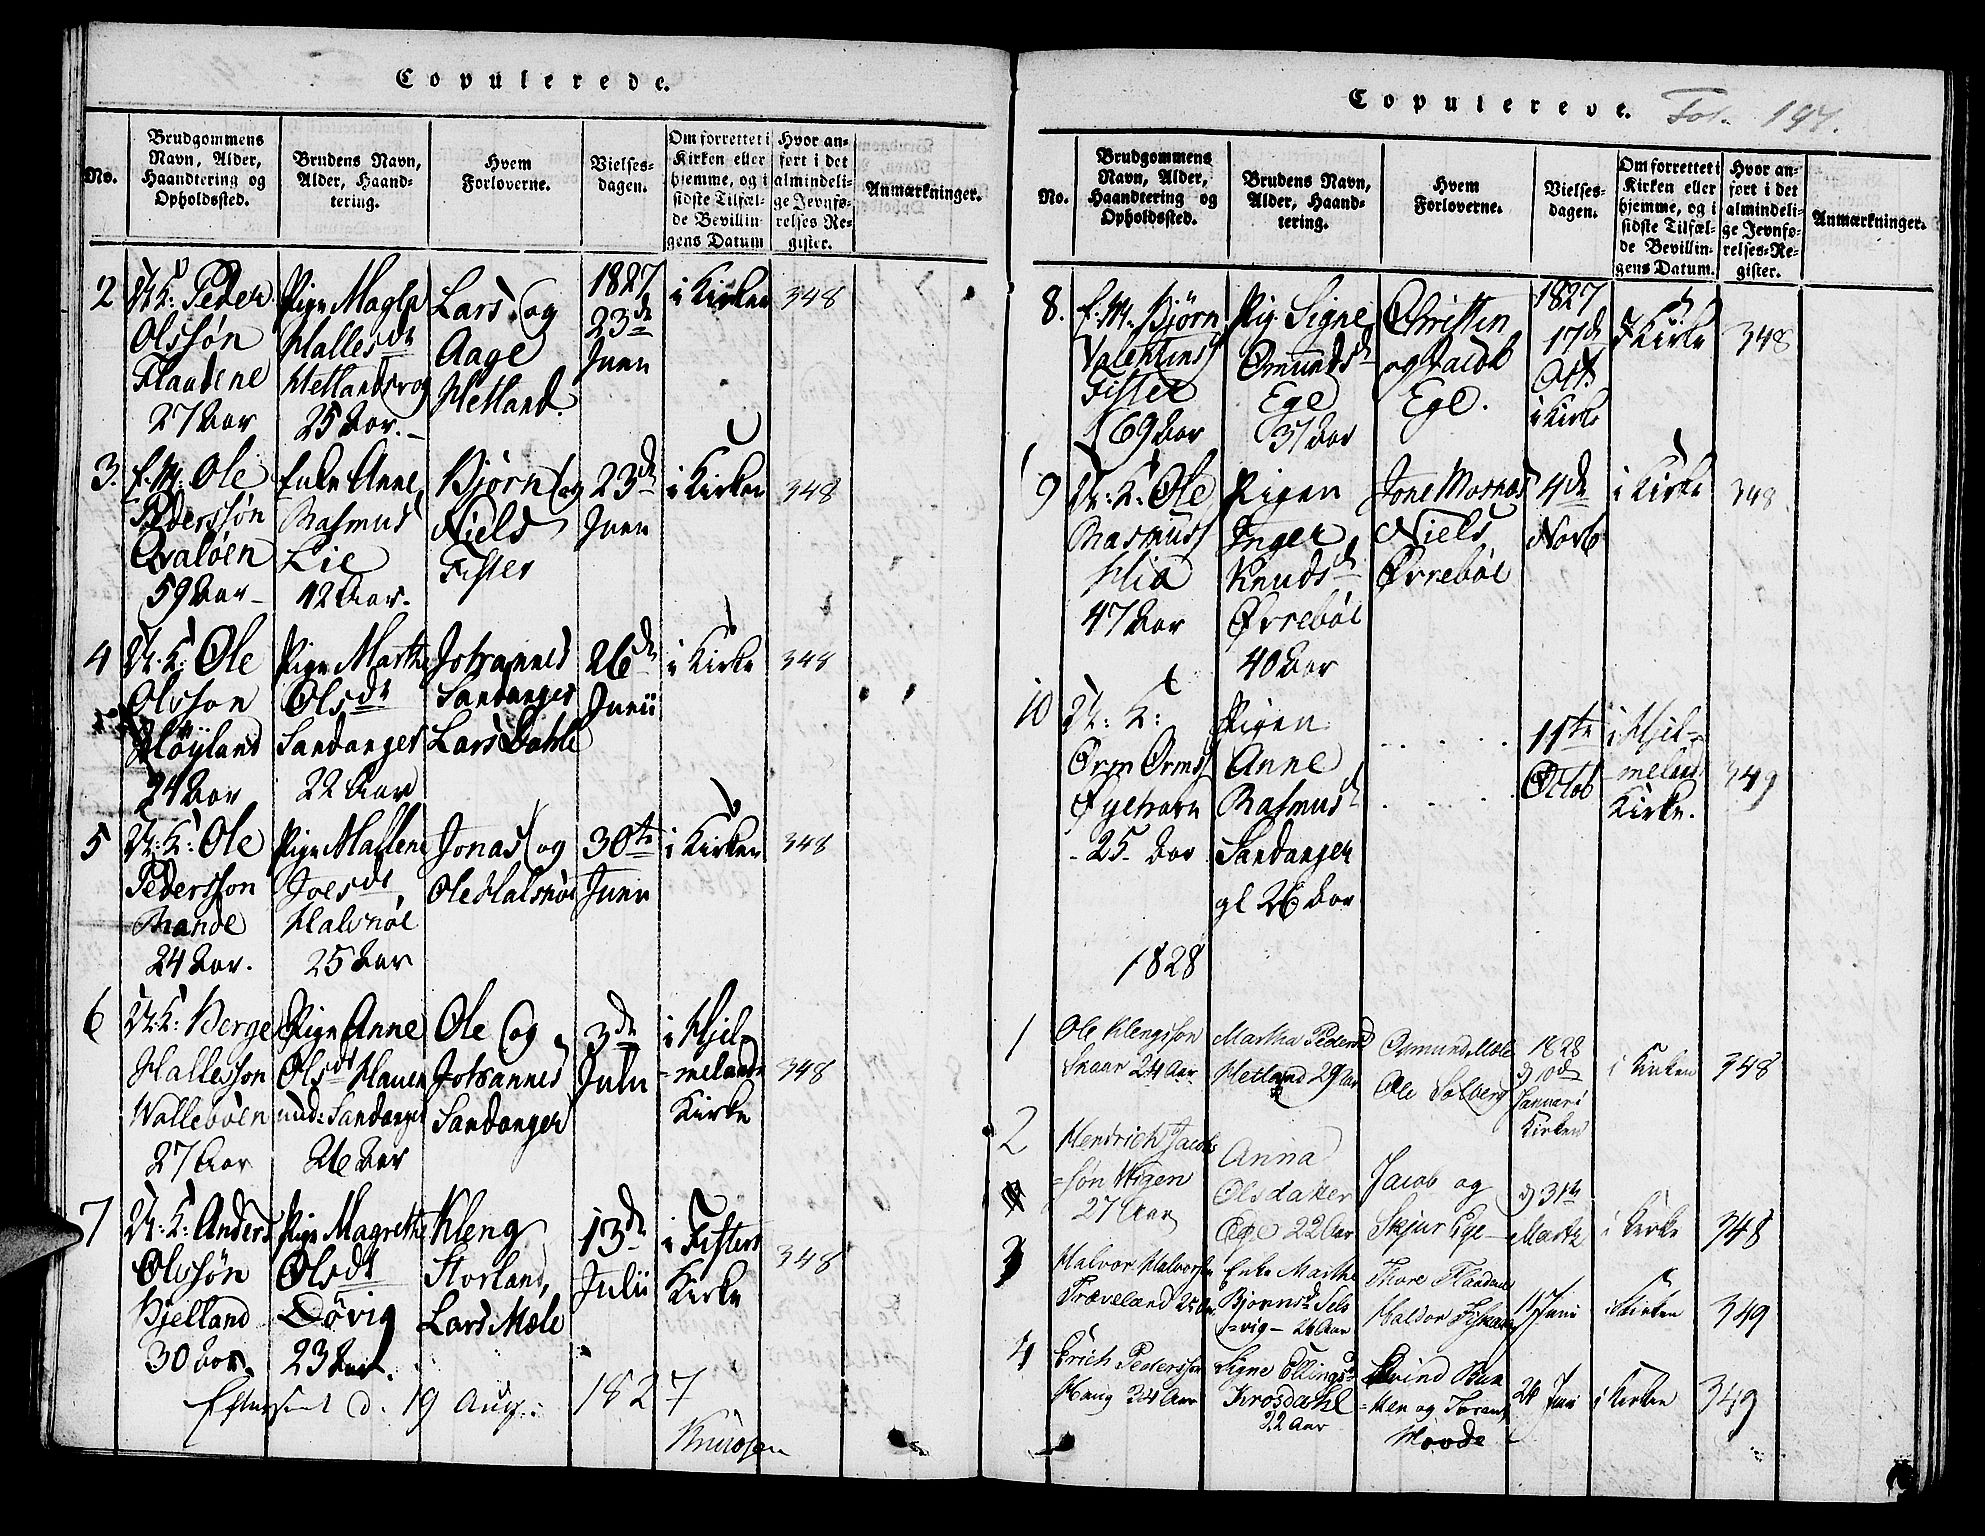 Copulerede.
No.
Brudgommens Navn, Alder, Haandtering og Opholdssted.
Brudens Navn, Alder, Haandtering.
Hvem Forloverne.
Vielsesdagen.
Om forrettet i Kirken eller hjemme, og i sidste Tilfælde Bevillingens Datum
Hvor anført i det almindelige Jevnførelses Register.
Anmærkninger.
2
U: K: Peder
Olssøn
Flaadene
27 Aar
Pige
Halles dt
25 Aar.
Lars og
Aage
Hetland.
1827
23de
Juni
i Kirken
348
3.
E. M. Ole
Pederssøn
Qvaløen
59 Aar
Enke Anne
Rasmusd
Lie
42 Aar.
Bjørn og
Niels
Fister
23de
Juni
i Kirken
348
4
U. K: Ole
Olsson
Høyland
24 Aar
Pige Marthe
Olsdt
Sandanger
22 Aar
Johannes
Sandanger
Lars Dahle
26de
Junii
i Kirke
348
5
U: K: Ole
Pedersson
Rande
24 Aar.
Pige Mallene
Joesdt
Halsnøe
25 Aar
Jonas og
Ole Halsnøe
30te
Juni
i Kirken
348
6
U: K: Berge
Hallesson
Wallebøen
27 Aar
Pige Anne
Olsdt
Sandanger
26 Aar
Ole og
Johannes
Sandanger
3de
Juli
i Hjel-
melands
Kirke
348
7
U: K: Anders
Olssøn
Hjelland
30 Aar.
Pige Magrethe
Olsdt
Døvig
23 Aar.
Kleng
Storland,
Lars Mæle
13de
Julii
i Fisters
Kirke
348
Efterseet d. 19 Aug: 1827
Knudsen
Copulerede. Fol. 197.
No.
Brudgommens Navn, Alder, Haandtering og Opholdssted.
Brudens Navn, Alder, Haandtering.
Hvem Forloverne.
Vielsesdagen.
Om forrettet i Kirken eller hjemme, og i sidste Tilfælde Bevillingens Datum.
Hvor anført i det almindelige Jevnførelses-Register.
Anmærkninger.
8.
E. M. Bjørn
Valentins
Fister
69 Aar
Pig. Signe
Omunds d
Ege
37 Aar
Christen
og Jacob
Ege.
1827
17de
Oct.
i Kirke
i Kirke
348
9
U: K: Ole
Rasmuss
Hlia
47 Aar
Pigen
Inger
Knudsd
Øvrebøe
40 Aar
Jone Mosnæs
Niels
Øvrebøe
4de
Novb
i Kirke
348
10
U: K:
Orm Orms
25 Aar
Pigen
Anne
Rasmusd
Sandanger
gl 26 Aar
11te
Octob
i Hjel-
melands
Kirke.
349
1828
1
Ole Klengsson
Skaar 24 Aar
Martha Peders
Hetland 29 Aar
Osmund Mæle
Ole Solberg
1828
d 10de
Januari
Kirken
i Kirken
348
2
Hendrich Jacobs
søn Wigen
27 Aar
Anna
Olsdatter
Ege 22 Aar
Jacob og
Skjur Ege
d 31te
Martz
i Kirke
348
3
Halvor Halvors
Træveland 25 Aar
Enke Marthe
Bjørnsd. Sels
vig 26 Aar
Thore
Haldor
17 Juni
i Kirken
349
4
Erich Pedersson
Haug 34 Aar
Signe Ellingsd
Krosdahl
22 Aar
Hovde
24 Juni
i Kirken
349